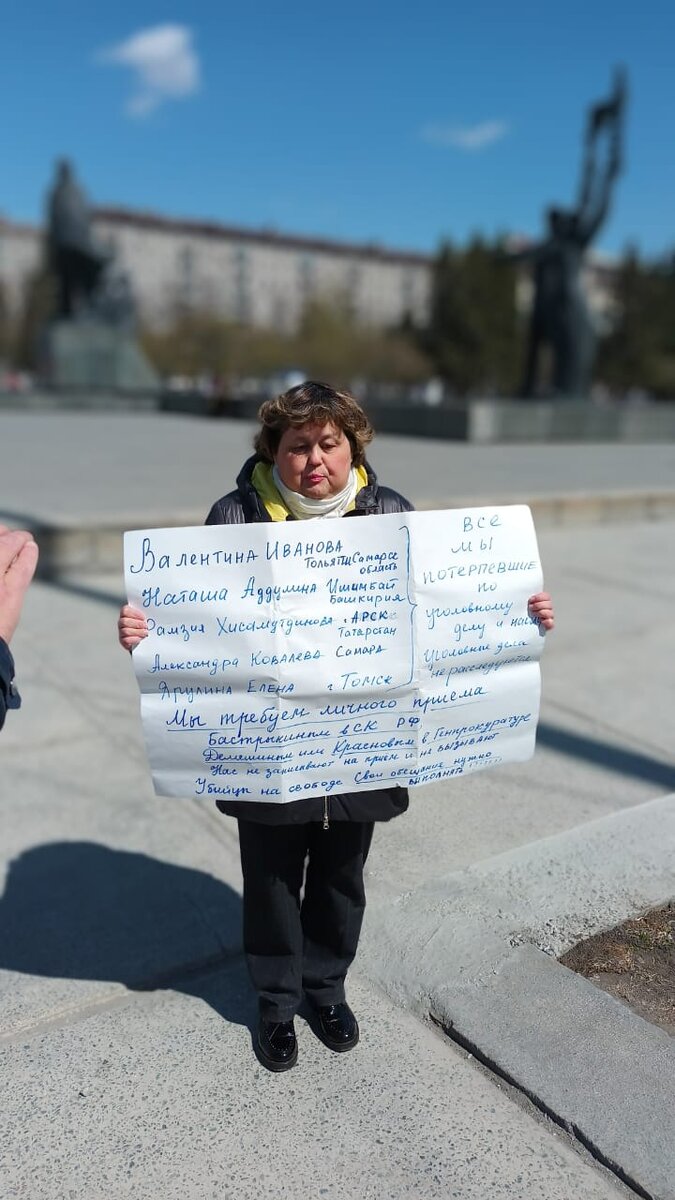 Валентина Иванова
Тольятти Самарс
область
Наташа Аддулина Ишимбай
Башкирия
Рамзия Хисамутдинова г. АРСК
Татарстан
Александра Ковалева Самара
Друлина Елена г. Томск
Все
мы
потерпевшие
по
уголовному
делу и наши
Уголовные дела
не расследуются
Мы требуем личного приема
Бастрыкиным в СК РФ
Демешиным или Красновым в Генпрокуратуре
Нас не записывают на приём и не вызывают
Убийцы на свободе Свои обещание нужно
выполнять